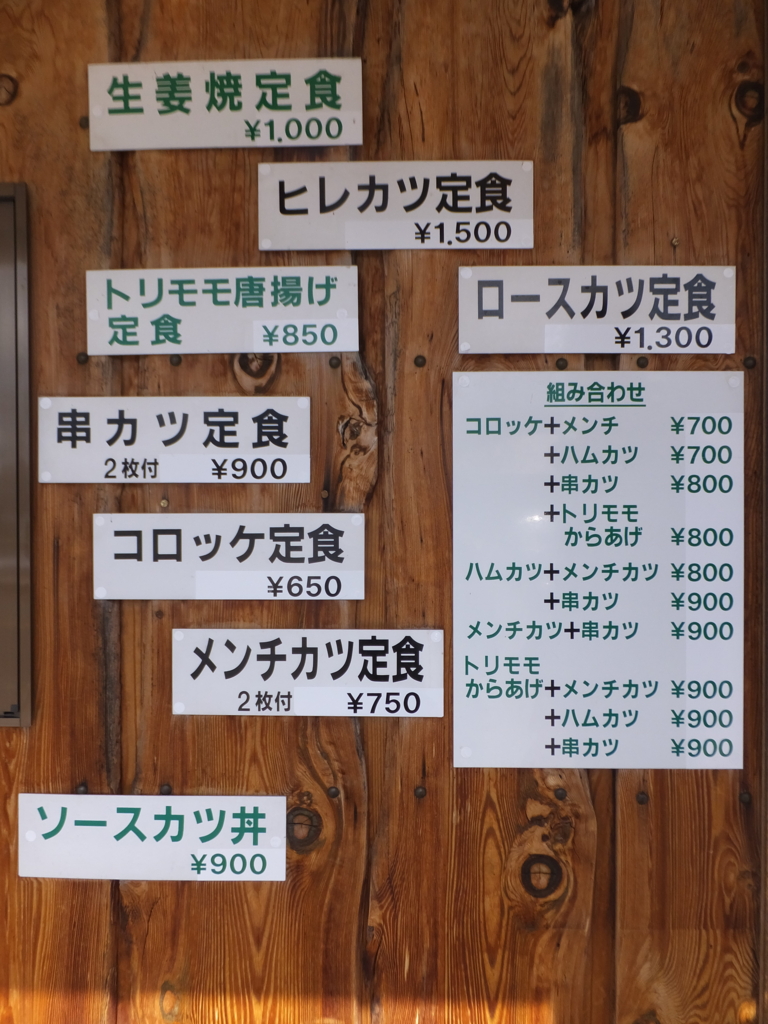 生姜焼定食
¥1.000
ヒレカツ定食
¥1.500
トリモモ唐揚げ
定食 ¥850
ロースカツ定食
¥1.300
串カツ定食
2枚付 ¥900
コロッケ定食
¥650
メンチカツ定食
2枚付 ¥750
ソースカツ丼
¥900
組み合わせ
コロッケ+メンチ ¥700
+ハムカツ ¥700
+串カツ ¥800
+トリモモ
からあげ ¥800
ハムカツ+メンチカツ ¥800
+串カツ ¥900
メンチカツ+串カツ ¥900
トリモモ
からあげ+メンチカツ ¥900
+ハムカツ ¥900
+串カツ ¥900